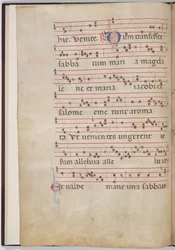 hic. Venite. R Cum transisset
sabba tum mari a magda
le ne et maria iacobi et
salome eme runt aroma
ta Ut venientes ungerent ie
sum alleluia alle lu
Et valde mane una sabbato